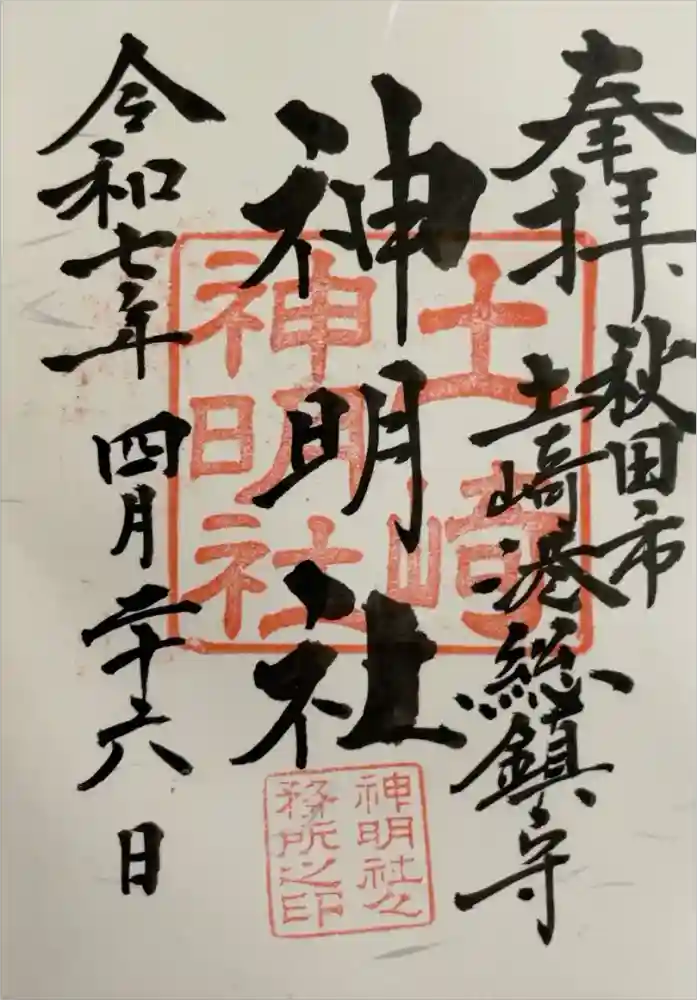 奉拝
秋田市
土崎港総鎮守
神明社
令和七年 四月二十六日
土崎
神明社
神明社之
務所之印